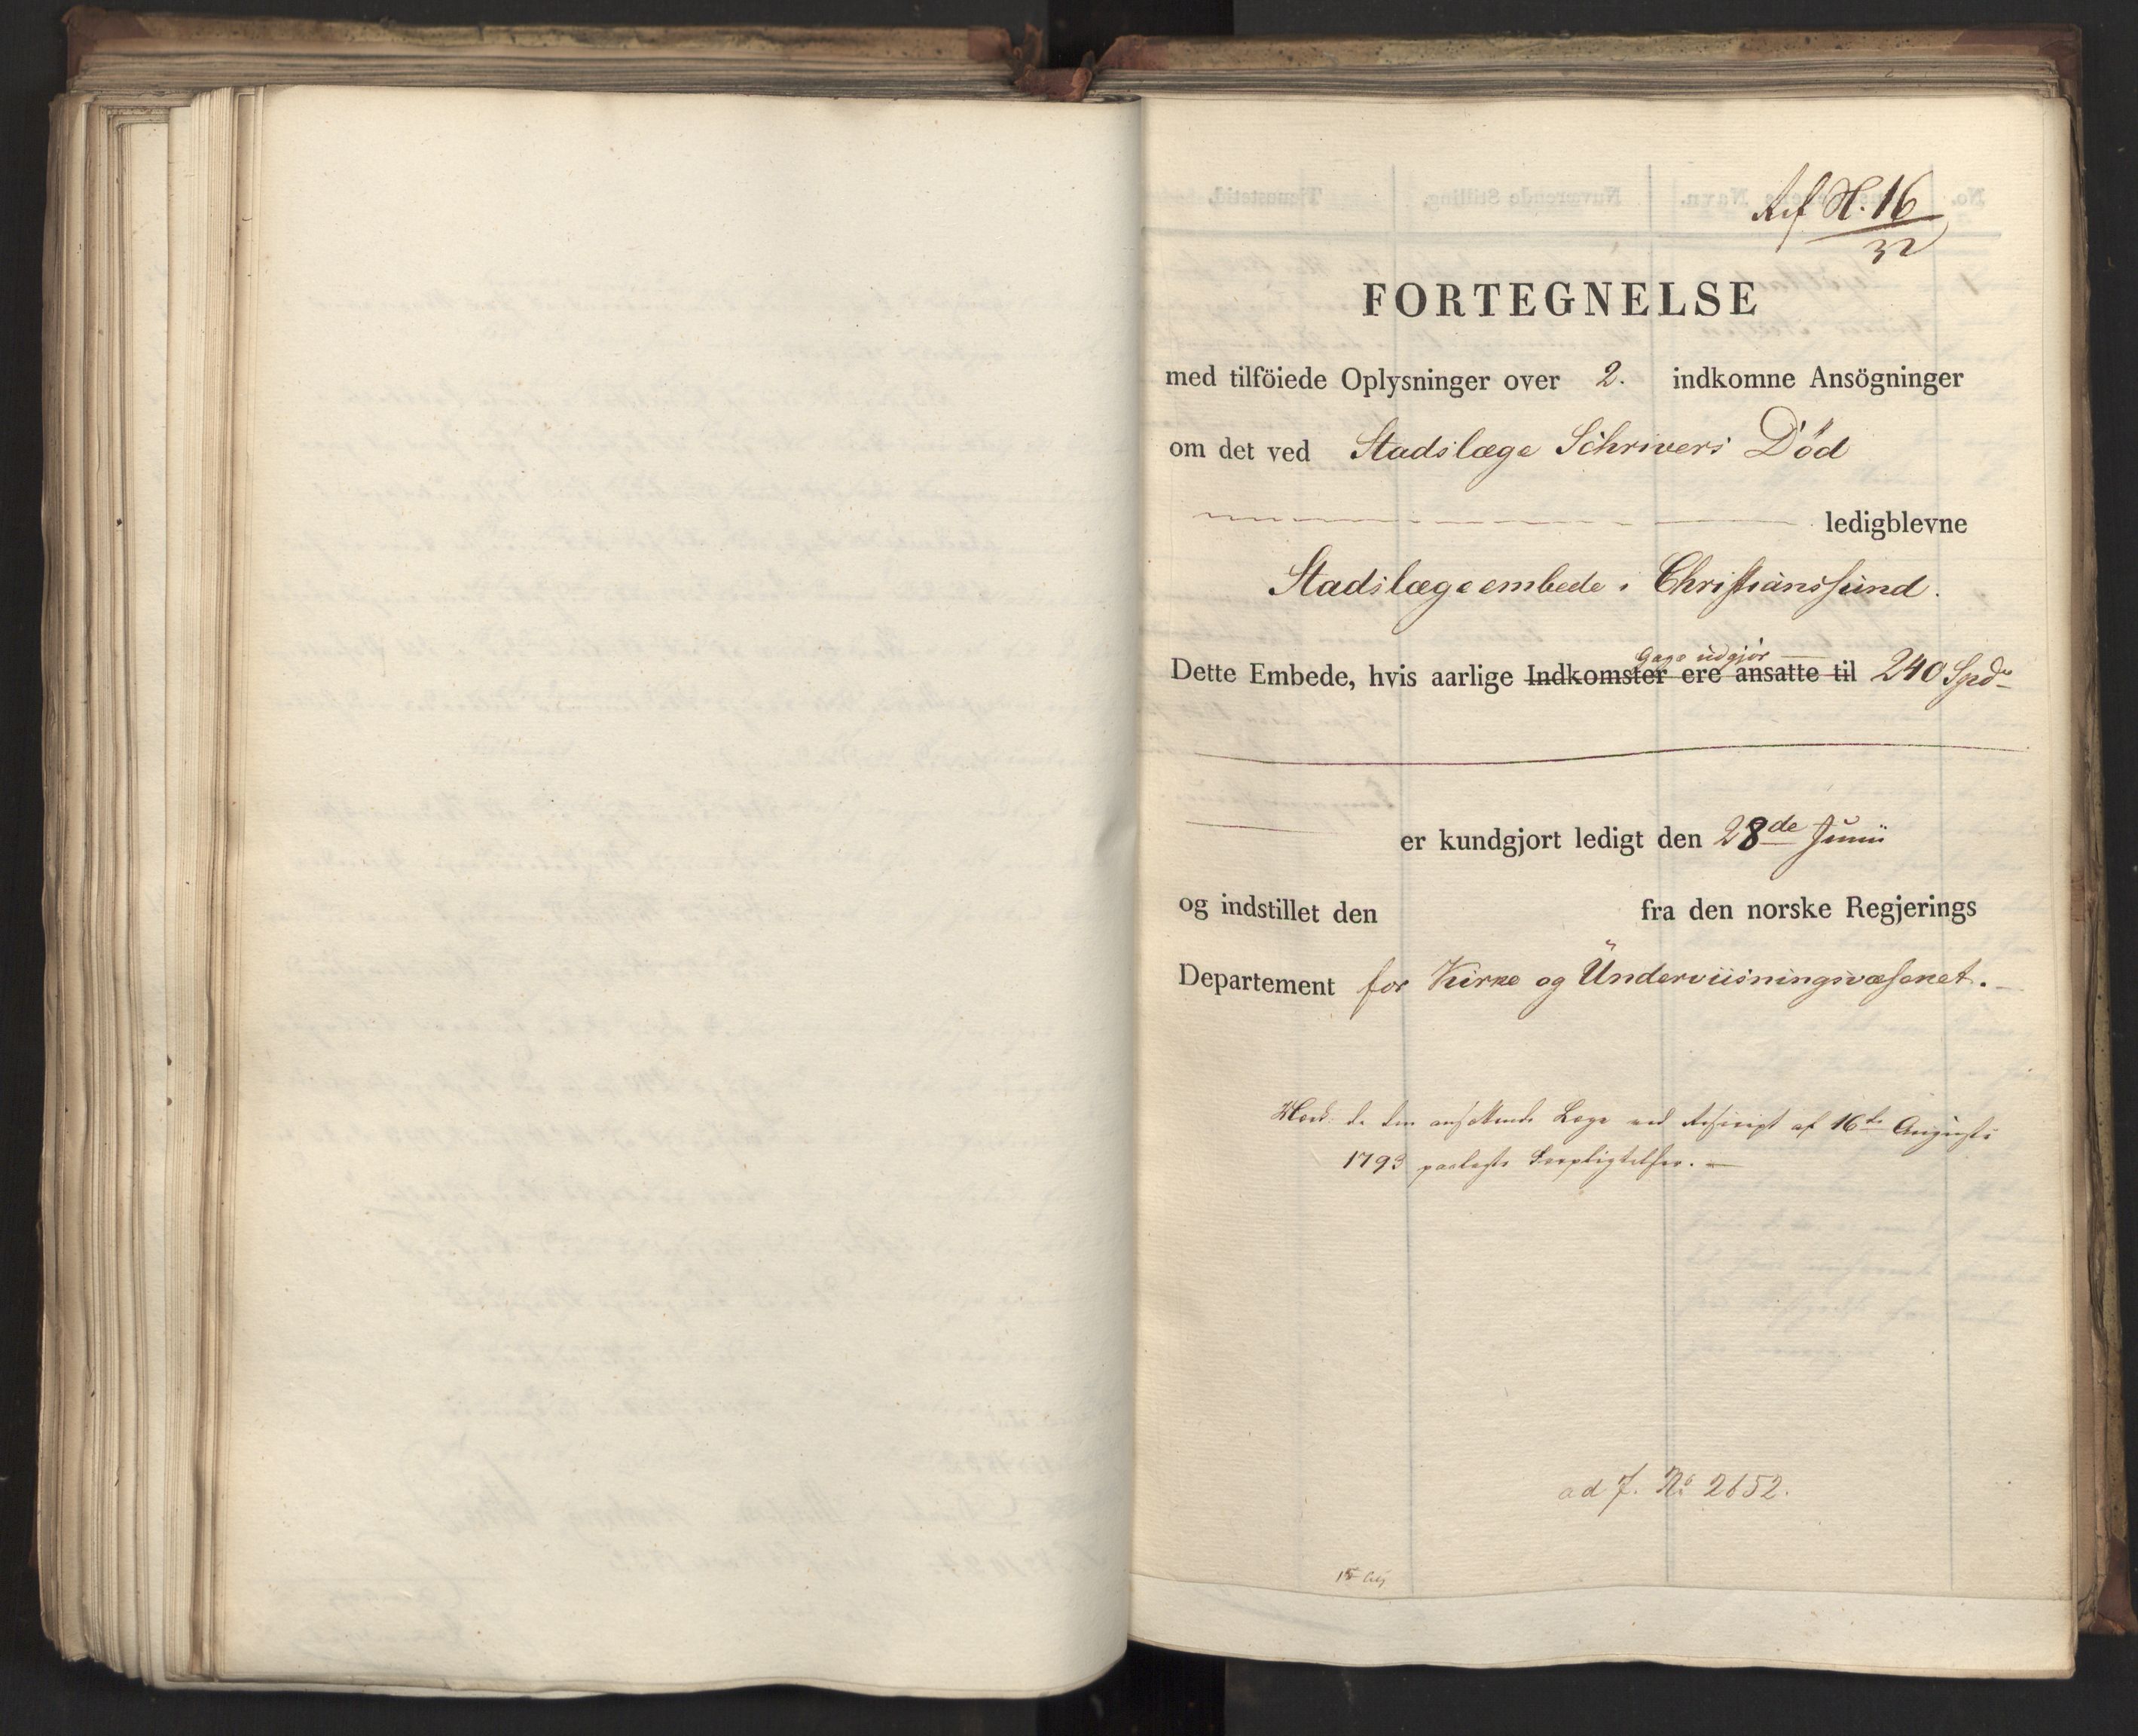 Ref H. 16
32
FORTEGNELSE
med tilföiede Oplysninger over 2. indkomne Ansögninger
om det ved Stadslæge Schrivers Död
ledigblevne
Stadslægeembede i Christianssund.
Gage udgjör
Dette Embede, hvis aarlige Indkomster ere ansatte til 240 Spd
er kundgjort ledigt den 28de Junii
og indstillet den fra den norske Regjerings
Departement for Kirke og Underviisningsvæsenet.
de den ansættende Læge ved Rescript af 16de Augusti
1793 paalagte Forpligtelser.
ad J. No 2652.